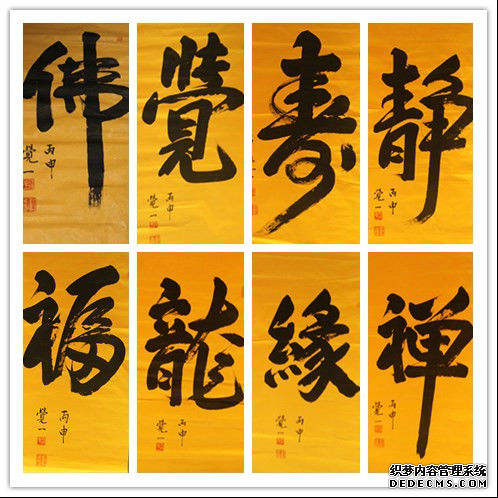 佛
丙申
覺一
覺
丙申
覺一
寿
丙申
覺一
静
丙申
覺一
福
丙申
覺一
龍
丙申
覺一
緣
丙申
覺一
禅
丙申
覺一
织梦内容管理系统
DEDECMS.COM